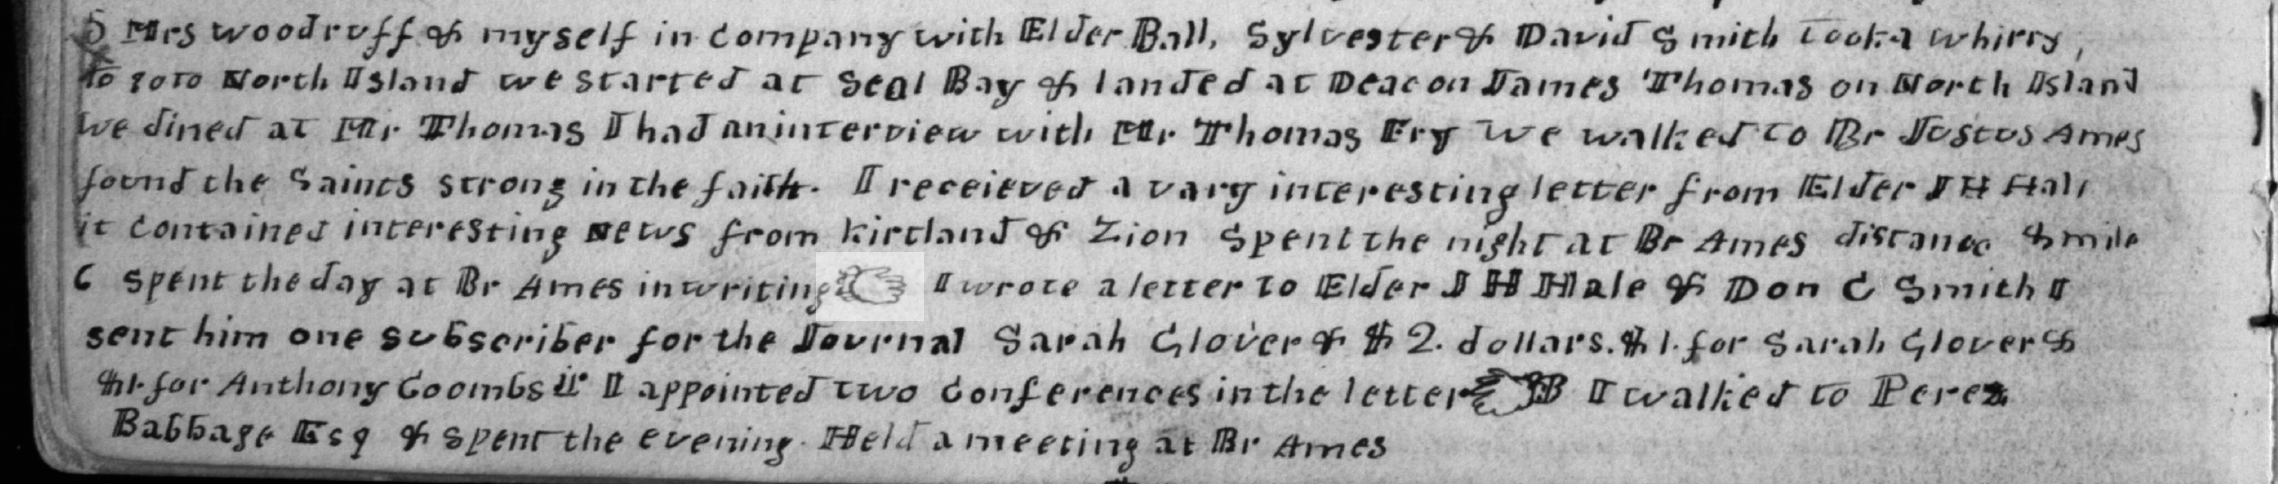 5 Mrs Woodruff & myself in company with Elder Ball, Sylvester & David Smith took a whirry,
to go to North Island we started at Seal Bay & landed at Deacon James Thomas on North Island
We dined at Mr Thomas I had an interview with Mr Thomas Fry We walked to Br Justus Ames
found the Saints strong in the faith. I receieved a vary interesting letter from Elder J H Hale
it contained interesting News from Kirtland & Zion Spent the night at Br Ames distance 8 mile
6 Spent the day at Br Ames in writing I wrote a letter to Elder J H Hale & Don C Smith I
sent him one subscriber for the Journal Sarah Glover & $2. dollars. $1. for Sarah Glover &
$1. for Anthony Coombs Jr I appointed two Conferences in the letter I walked to Perez
Babbage Esq & spent the evening. Held a meeting at Br Ames